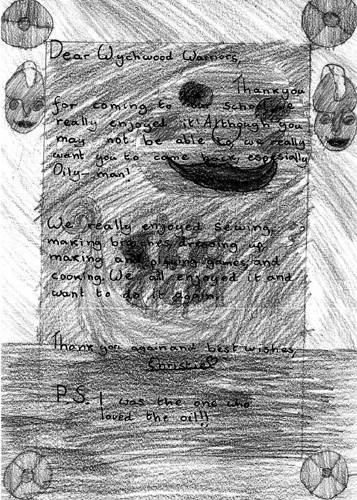 Dear Wychwood Warriors,
Thankyou
for coming to our school we
really enjoyed it! Although you
may not be able to, we really
want you to come back especially
Oily-man!
We really enjoyed sewing,
making broches, dressing up,
making and playing games, and
cooking. We all enjoyed it and
want to do it again.
Thank you again and best wishes,
Christie
P.S. I was the one who
loved the oil!!